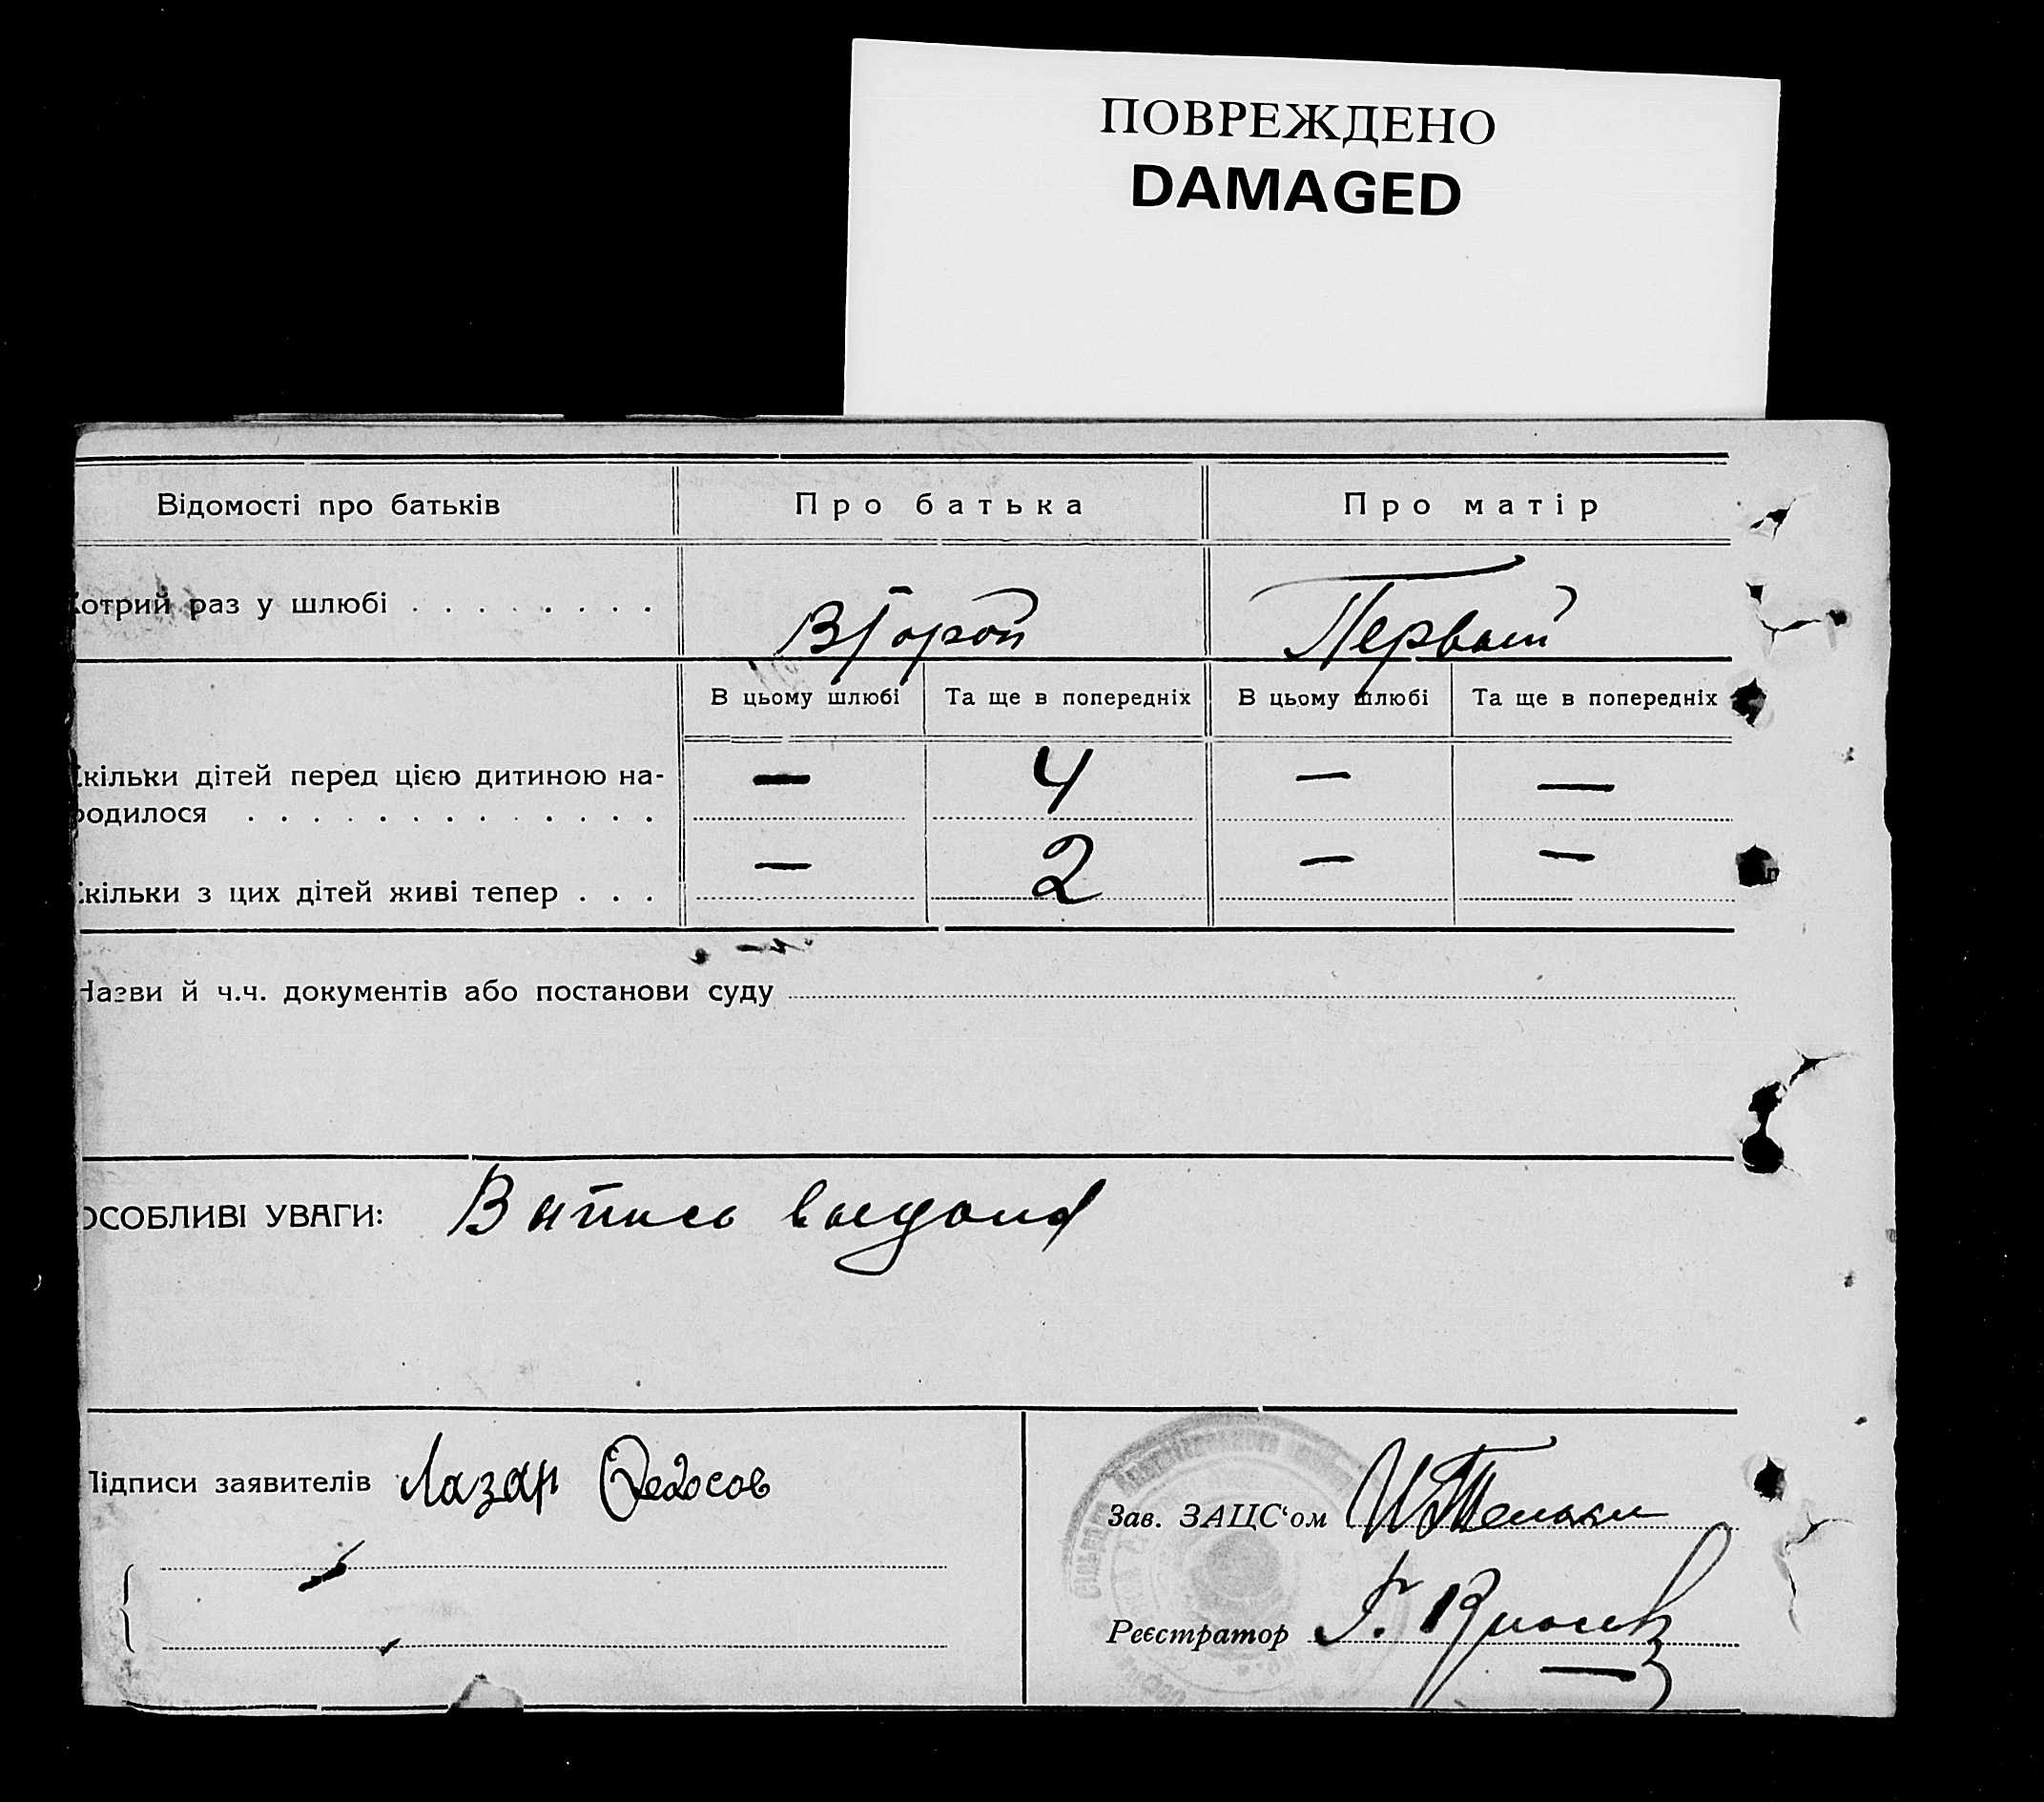 ПОВРЕЖДЕНО
DAMAGED
Відомості про батьків Про батька Про матір
отрий раз у шлюбі . . . . . . . . Второй Первый
В цьому шлюбі Та ще в попередніх В цьому шлюбі Та ще в попередніх
кільки дітей перед цією дитиною на- — 4 — —
родилося . . . . . . . . . . . . .
кільки з цих дітей живі тепер . . . — 2 — —
Назви й ч.ч. документів або постанови суду
ОСОБЛИВІ УВАГИ: Выпись выдана
Підписи заявителів Лазар Федосов
Зав. ЗАЦС‘ом
Реєстратор Г.